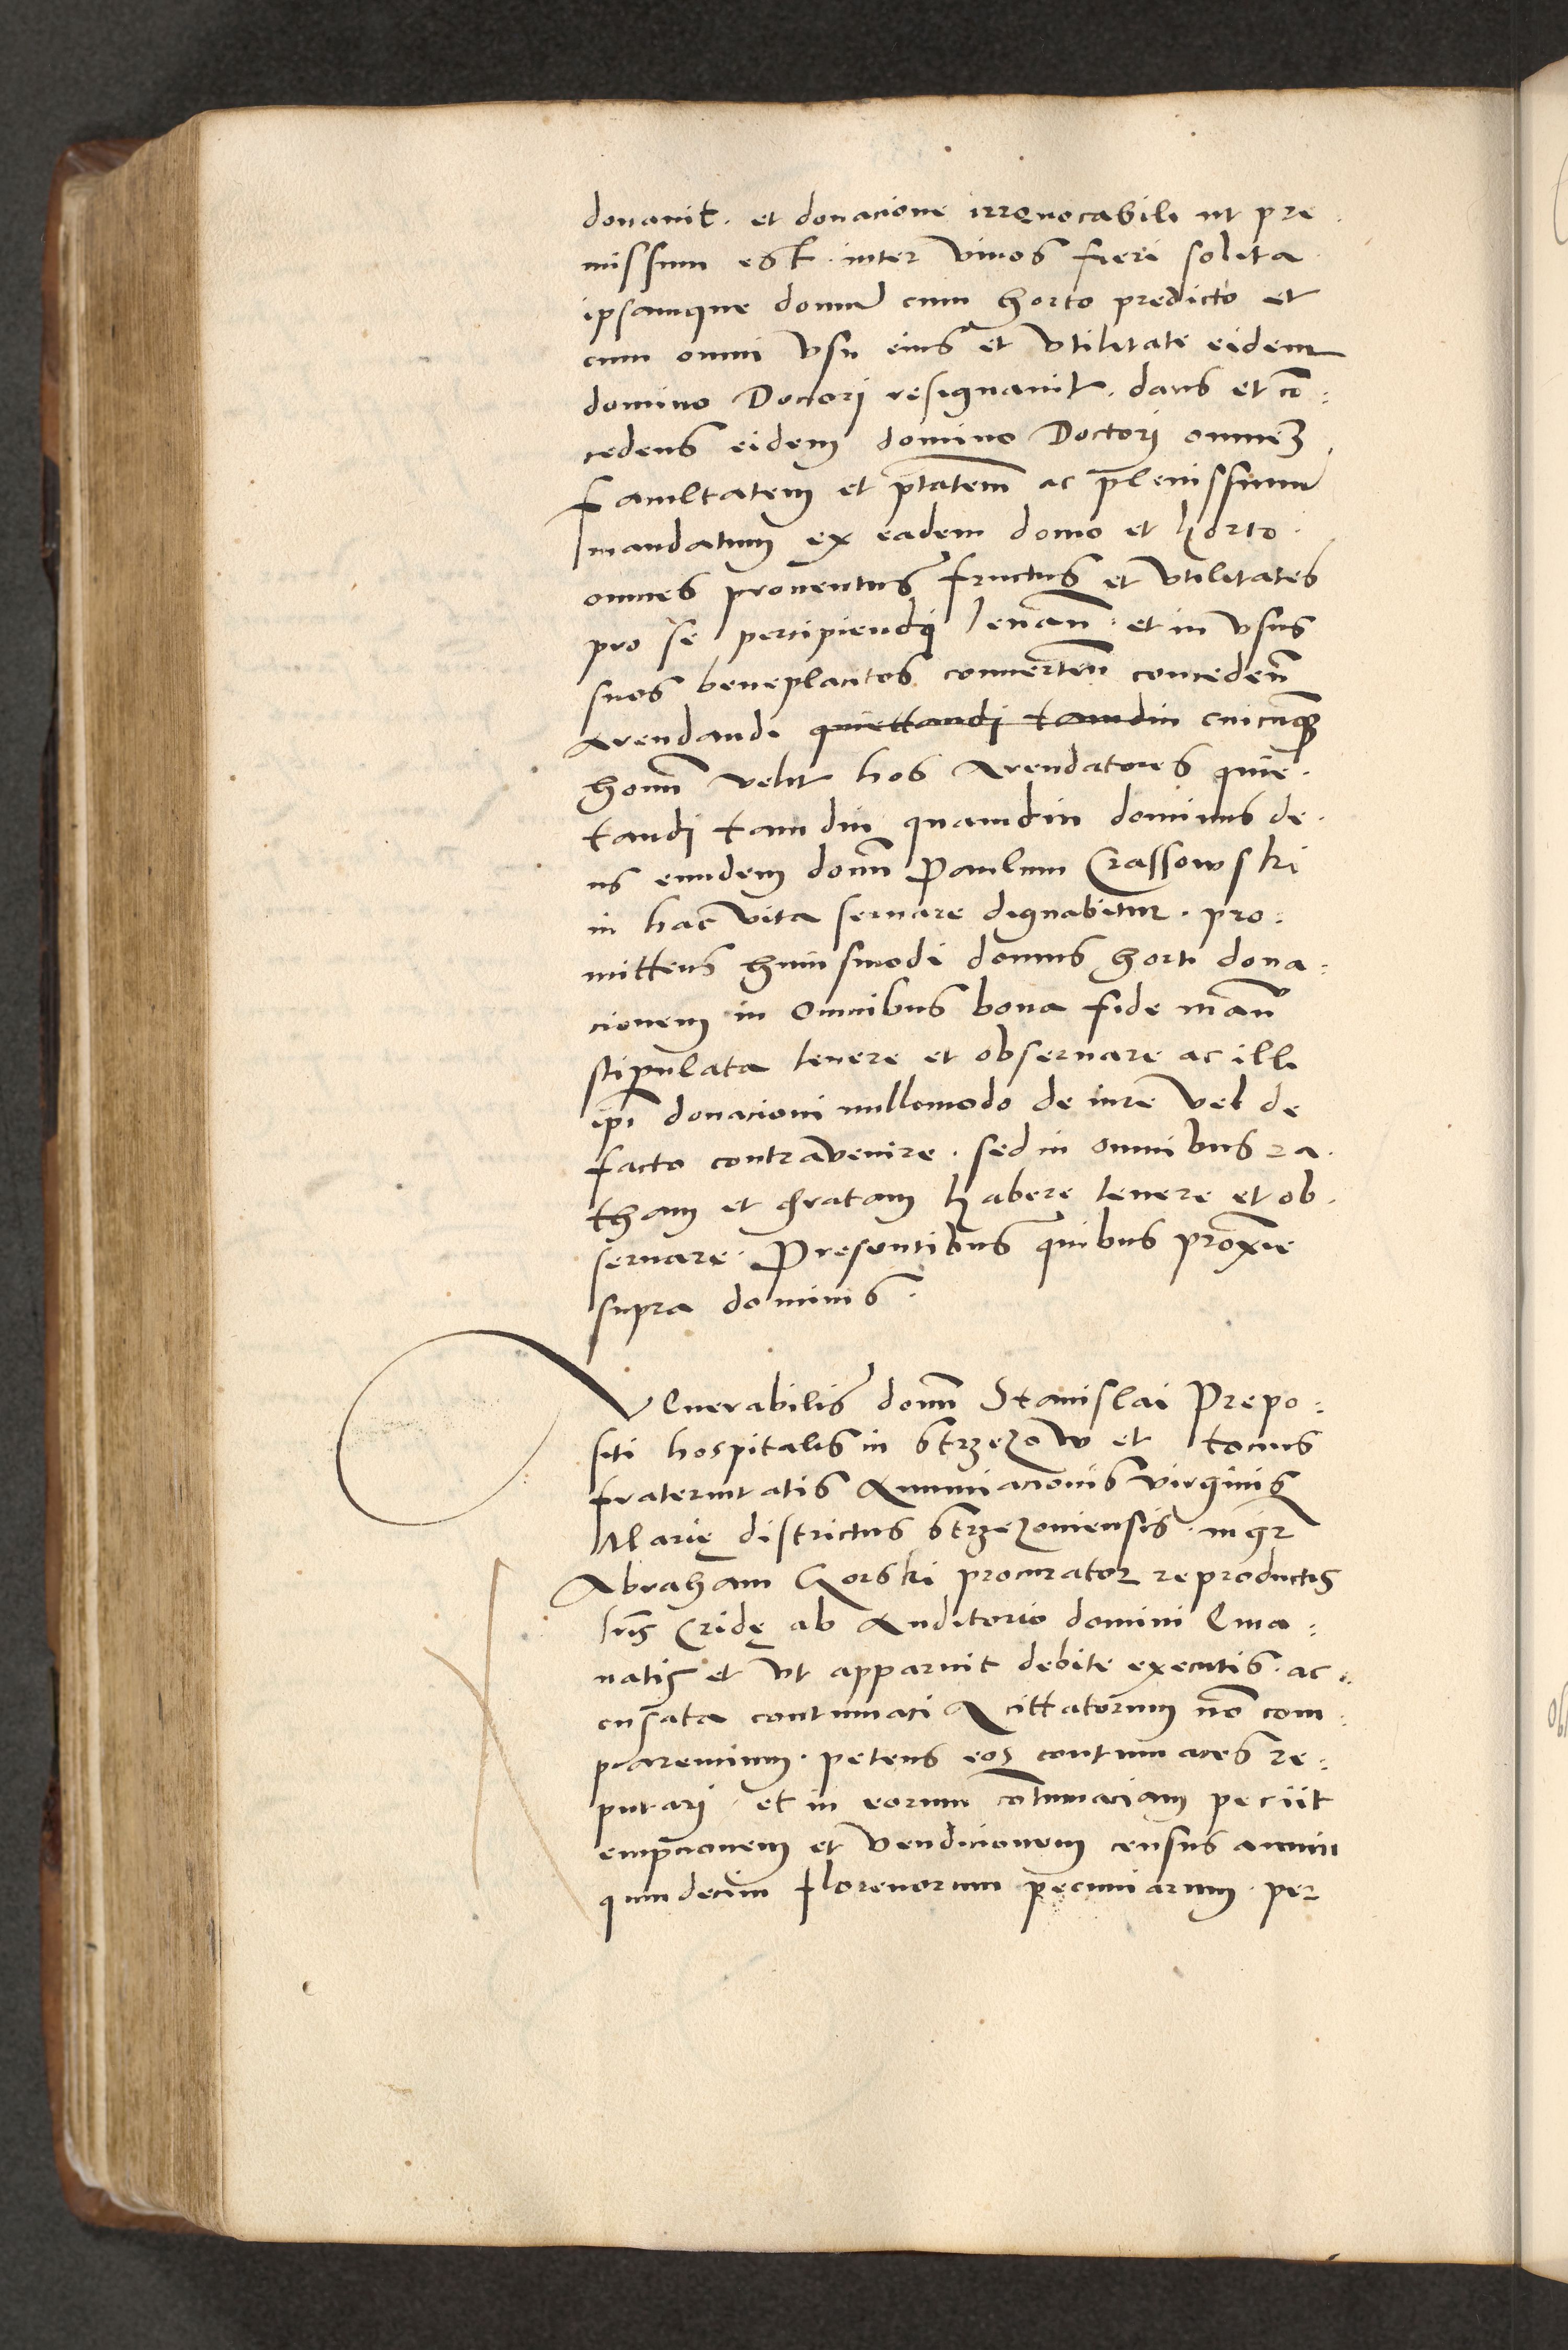 donauit. et donacione irreuocabili ut pre.
missum est. inter viuos fieri solita.
ipsamque domum cum horto predicto et
cum omni vsu eius et vtilitate eidem
domino Doctori resignauit. dans et cō:
cedens eidem domino Doctori omnem
facultatem et ptātem ac plenissimum
mandatum ex eadem domo et horto.
omnes prouentus fructus et vtilitates
pro se percipiendi leuan̄. et in vsus
suos beneplacitos conuerten̄ conceden̄
Arendandi quiettandi tamdiu cuicunque
homī velit hos Arendatores quie.
tandi tam diu quamdiu dominus de.
us eundem domn̄ Paulum Crassowski
in hac vita seruare dignabitur. pro:
mittens huiusmodi domus horti dona:
cionem in omnibus bona fide manu
stipulata tenere et obseruare ac illi
ip̄i donacioni nullomodo de iure vel de
facto contravenire. sed in omnibus ra.
tham et gratam habere tenere et ob.
seruare. Presentibus quibus proxīe
supra dominis.
VEnerabilis domn̄ Stanislai Prepo:
siti hospitalis in Brzezow et tocius
fraternitatis Anunciacionis virginis
Marię districtus Brzezouiensis. mgr̄
Abraham Gorski procurator reproductis
lrīs Cridę ab Auditorio domini Ema:
natis et vt apparuit debite executis. ac:
cusata contumaci A cittatorum nō com:
parencium. petens eos contumaces re:
putari et in eorum cōtumaciam peciit
empcionem et vendicionem census annui
quindecim florenorum pecuniarum. per